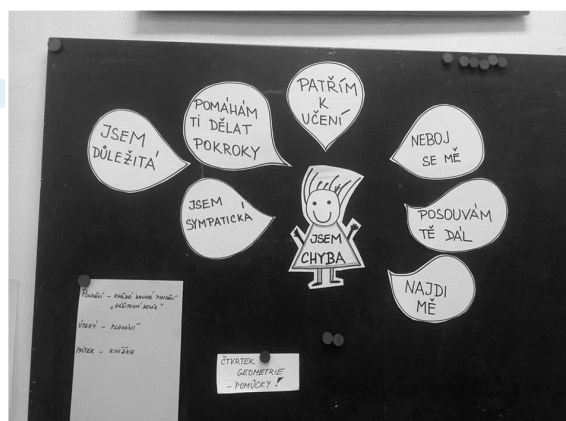 JSEM
DŮLEŽITÁ
POMÁHÁM
TI DĚLAT
POKROKY
PATŘÍM
K
UČENÍ
NEBOJ
SE MĚ
JSEM
SYMPATICKÁ
JSEM
CHYBA
POSOUVÁM
TĚ DÁL
NAJDI
MĚ
PONDĚLÍ – KAŽDÉ DRUHÉ PONDĚLÍ
ÚTERÝ – PLAVÁNÍ
PÁTEK – KNÍŽKA
ČTVRTEK
GEOMETRIE
– POMŮCKY !